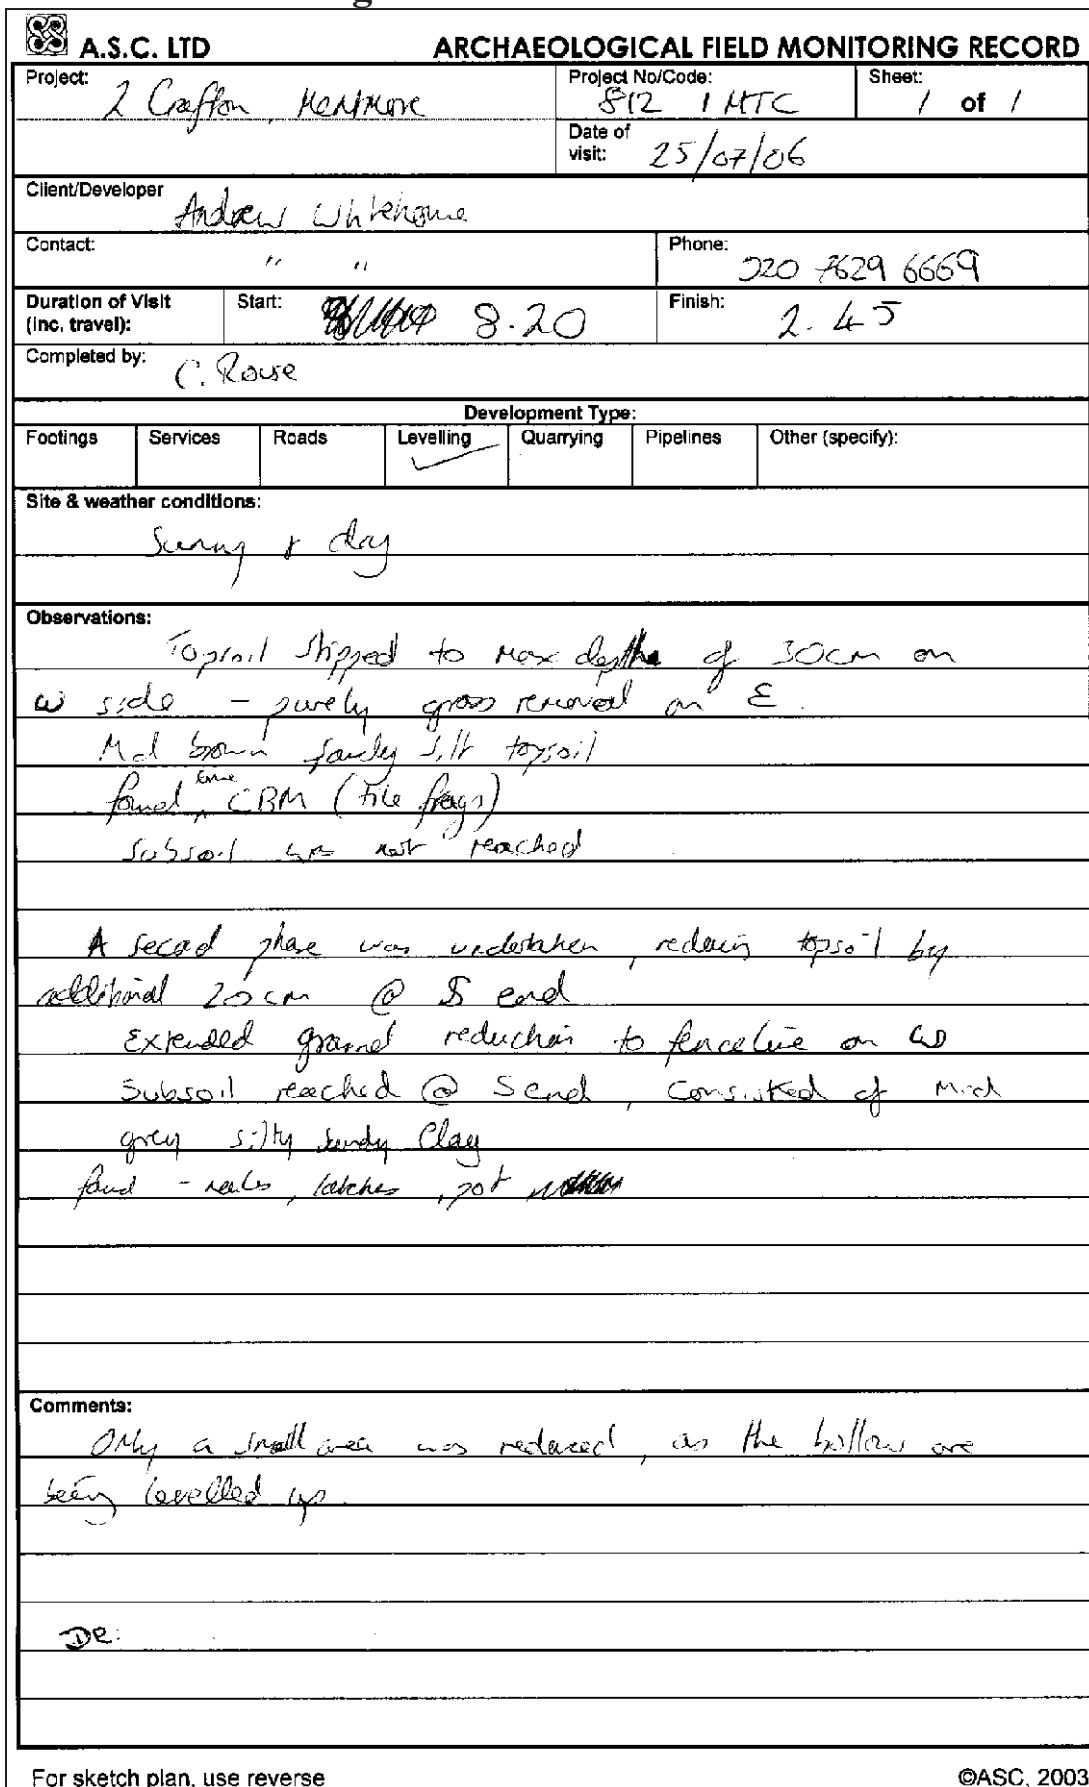 A.S.C. LTD ARCHAEOLOGICAL FIELD MONITORING RECORD
Project: 2 Crafton, Mentmore
Project No/Code: 812 / MTC
Sheet: 1 of 1
Date of visit: 25/07/06
Client/Developer Andrew Whitehouse
Contact: " "
Phone: 020 7629 6669
Duration of Visit (inc. travel): Start: 8.20 Finish: 2.45
Completed by: C. Rouse
Development Type:
Footings Services Roads Levelling ✓ Quarrying Pipelines Other (specify):
Site & weather conditions:
Sunny & dry
Observations:
Topsoil stripped to max depth of 30cm on
W side – purely grass removal on E.
Mid brown sandy silt topsoil
found some CBM (tile frags)
Subsoil was not reached
A second phase was undertaken, reducing topsoil by
additional 20cm @ S end
Extended ground reduction to fenceline on W
Subsoil reached @ S end, consisted of mid
grey silty sandy clay
found – nails, latches, pot
Comments:
Only a small area was reduced, as the hollow are
being levelled up.
DR:
For sketch plan, use reverse ©ASC, 2003